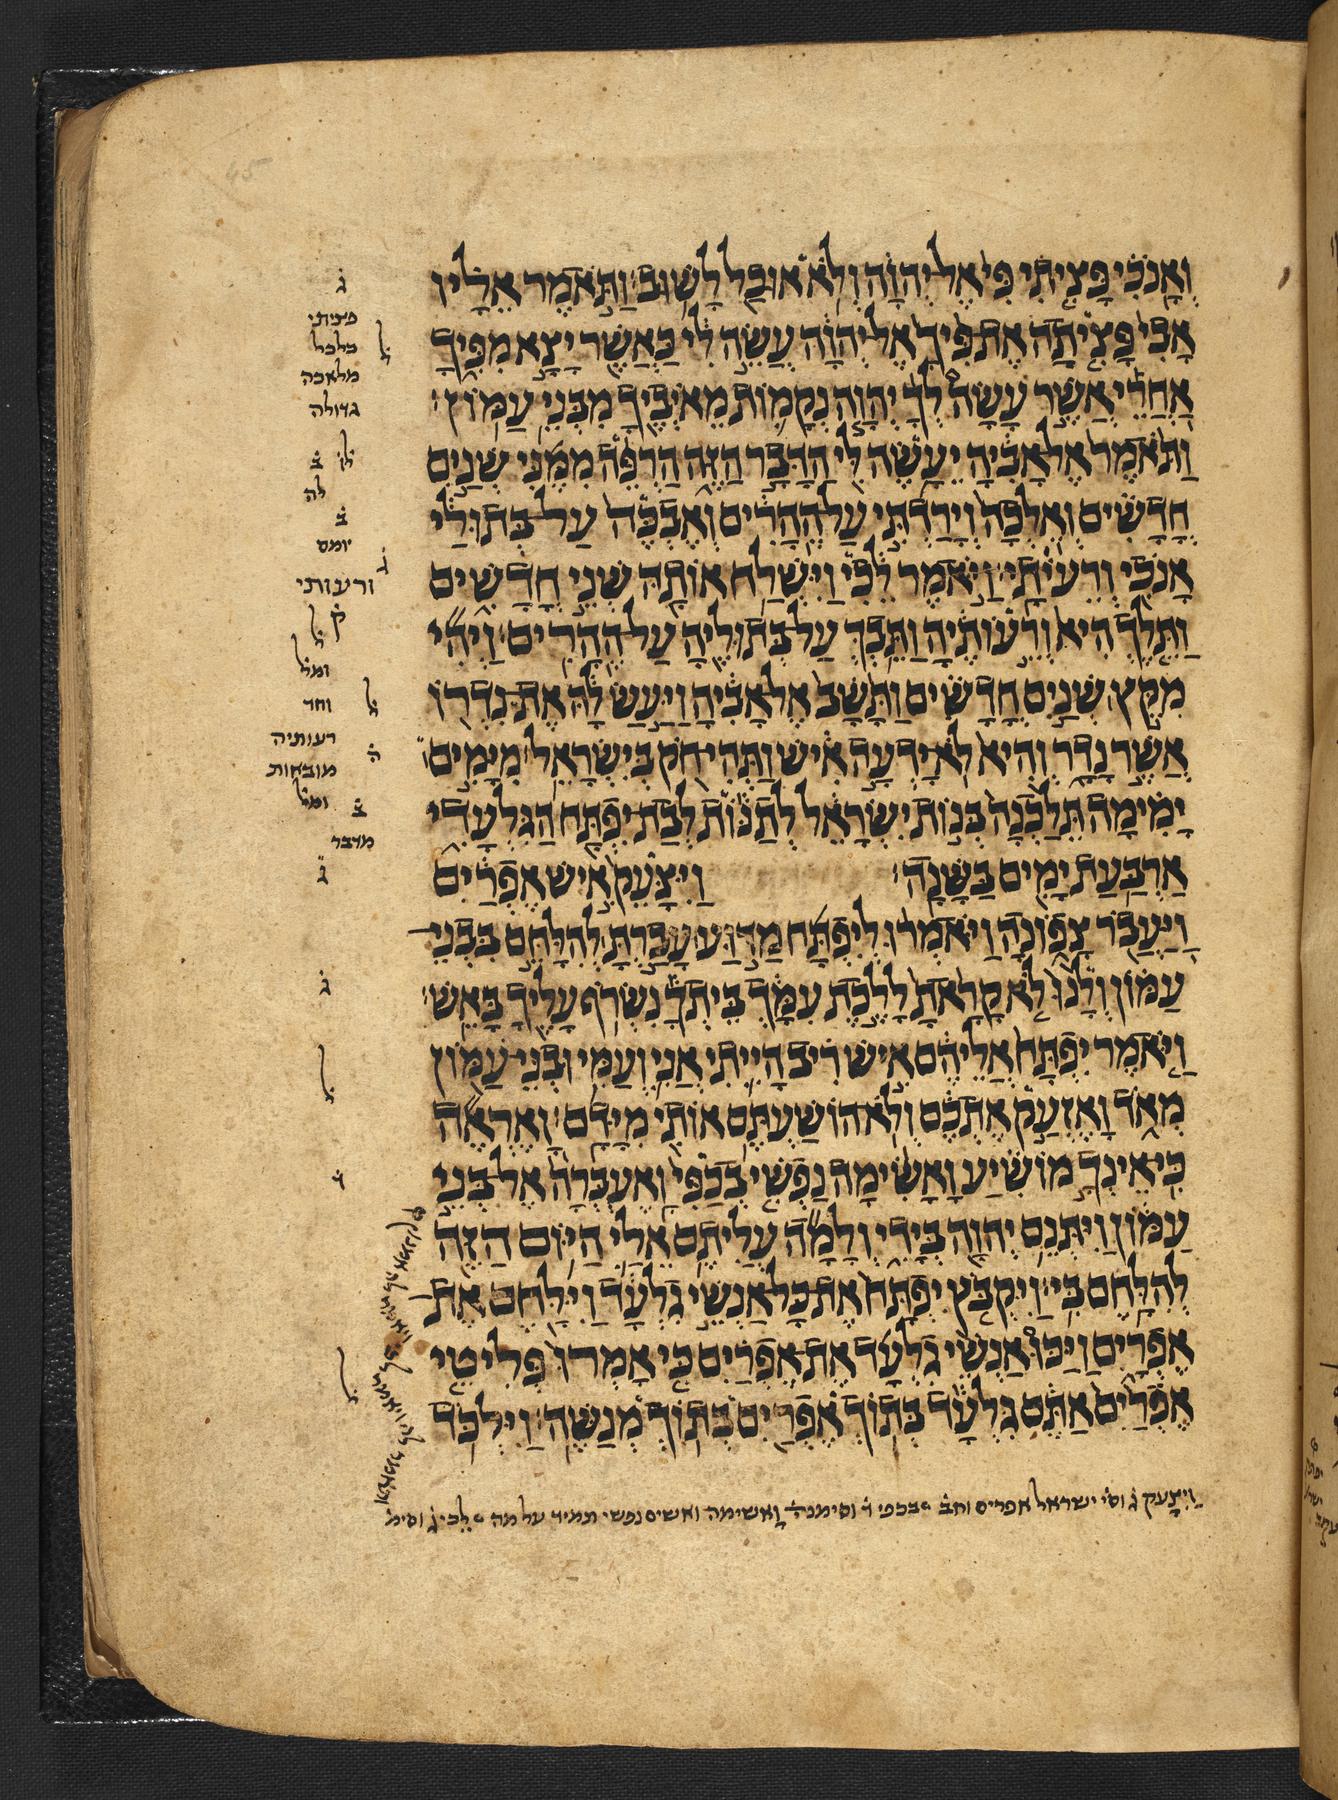 וְאָנֹכִי פָּצִיתִי פִי אֶל יְהוָה וְלֹא אוּכַל לָשׁוּב׃ וַתֹּאמֶר אֵלָיו
אָבִי פָּצִיתָה אֶת פִּיךָ אֶל יְהוָה עֲשֵׂה לִי כַּאֲשֶׁר יָצָא מִפִּיךָ
אַחֲרֵי אֲשֶׁר עָשָׂה לְךָ יְהוָה נְקָמוֹת מֵאֹיְבֶיךָ מִבְּנֵי עַמּוֹן׃
וַתֹּאמֶר אֶל אָבִיהָ יֵעָשֶׂה לִּי הַדָּבָר הַזֶּה הַרְפֵּה מִמֶּנִּי שְׁנַיִם
חֳדָשִׁים וְאֵלְכָה וְיָרַדְתִּי עַל הֶהָרִים וְאֶבְכֶּה עַל בְּתוּלַי
אָנֹכִי וְרֵעיֹתָי׃ וַיֹּאמֶר לֵכִי וַיִּשְׁלַח אוֹתָהּ שְׁנֵי חֳדָשִׁים
וַתֵּלֶךְ הִיא וְרֵעוֹתֶיהָ וַתֵּבְךְּ עַל בְּתוּלֶיהָ עַל הֶהָרִים׃ וַיְהִי
מִקֵּץ שְׁנַיִם חֳדָשִׁים וַתָּשָׁב אֶל אָבִיהָ וַיַּעַשׂ לָהּ אֶת נִדְרוֹ
אֲשֶׁר נָדָר וְהִיא לֹא יָדְעָה אִישׁ וַתְּהִי חֹק בְּיִשְׂרָאֵל׃ מִיָּמִים
יָמִימָה תֵּלַכְנָה בְּנוֹת יִשְׂרָאֵל לְתַנּוֹת לְבַת יִפְתָּח הַגִּלְעָדִי
אַרְבַּעַת יָמִים בַּשָּׁנָה׃ וַיִּצָּעֵק אִישׁ אֶפְרַיִם
וַיַּעֲבֹר צָפוֹנָה וַיֹּאמְרוּ לְיִפְתָּח מַדּוּעַ עָבַרְתָּ לְהִלָּחֵם בִּבְנֵי
עַמּוֹן וְלָנוּ לֹא קָרָאתָ לָלֶכֶת עִמָּךְ בֵּיתְךָ נִשְׂרֹף עָלֶיךָ בָּאֵשׁ׃
וַיֹּאמֶר יִפְתָּח אֲלֵיהֶם אִישׁ רִיב הָיִיתִי אֲנִי וְעַמִּי וּבְנֵי עַמּוֹן
מְאֹד וָאֶזְעַק אֶתְכֶם וְלֹא הוֹשַׁעְתֶּם אוֹתִי מִיָּדָם׃ וָאֶרְאֶה
כִּי אֵינְךָ מוֹשִׁיעַ וָאָשִׂימָה נַפְשִׁי בְכַפִּי וָאֶעְבְּרָה אֶל בְּנֵי
עַמּוֹן וַיִּתְּנֵם יְהוָה בְּיָדִי וְלָמָה עֲלִיתֶם אֵלַי הַיּוֹם הַזֶּה
לְהִלָּחֶם בִּי׃ וַיִּקְבֹּץ יִפְתָּח אֶת כָּל אַנְשֵׁי גִלְעָד וַיִּלָּחֶם אֶת
אֶפְרָיִם וַיַּכּוּ אַנְשֵׁי גִלְעָד אֶת אֶפְרַיִם כִּי אָמְרוּ פְּלִיטֵי
אֶפְרַיִם אַתֶּם גִּלְעָד בְּתוֹךְ אֶפְרַיִם בְּתוֹךְ מְנַשֶּׁה׃ וַיִּלְכֹּד
ג
פציתי
כלכל
מלאכה
גדולה
ל
ב
לה
ב
יומס
ג
ורעותי
ק
ל
ומל
וחד
ל
רעותיה
ה
מובאות
ומל
ב
מדבר
ג
ג
ל
ד
ל
וַיִּצָּעֵק ג וסי ישראל אפרים וחב בכפי ד וסימנה וָאשימה ואשים נפשי תמיד על מה לכי ג וסימ